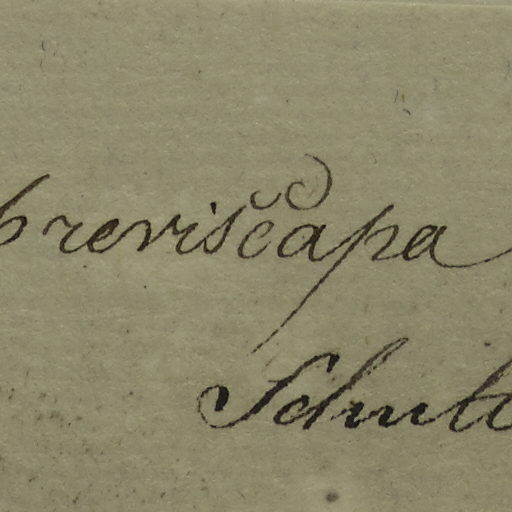 breviscapa
Schult